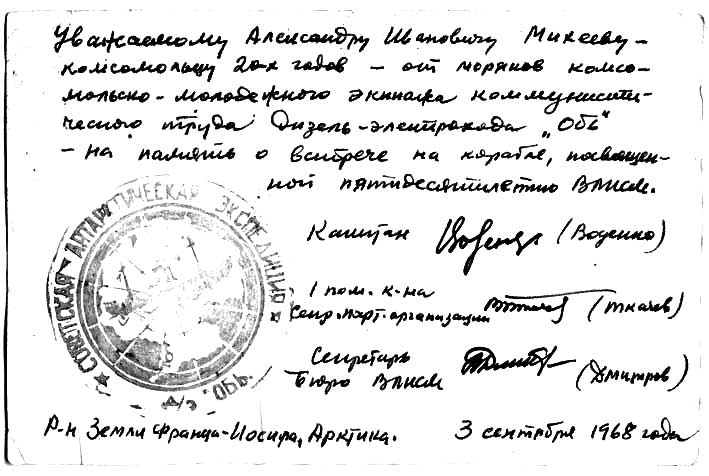 Уважаемому Александру Ивановичу Михееву -
комсомольцу 20-х годов - от моряков комсо-
мольско-молодежного экипажа коммунисти-
ческого труда Дизель-электрохода „Обь"
- на память о встрече на корабле, посвящен-
ной пятидесятилетию ВЛКСМ.
Капитан (Воденко)
1 пом. к-на
Секр. парт. организации (Ткачев)
Секретарь
Бюро ВЛКСМ (Дмитров)
★ СОВЕТСКАЯ АНТАРКТИЧЕСКАЯ ЭКСПЕДИЦИЯ ★
Э/Д „ОБЬ"
Р-н Земли Франца-Иосифа, Арктика. 3 сентября 1968 года